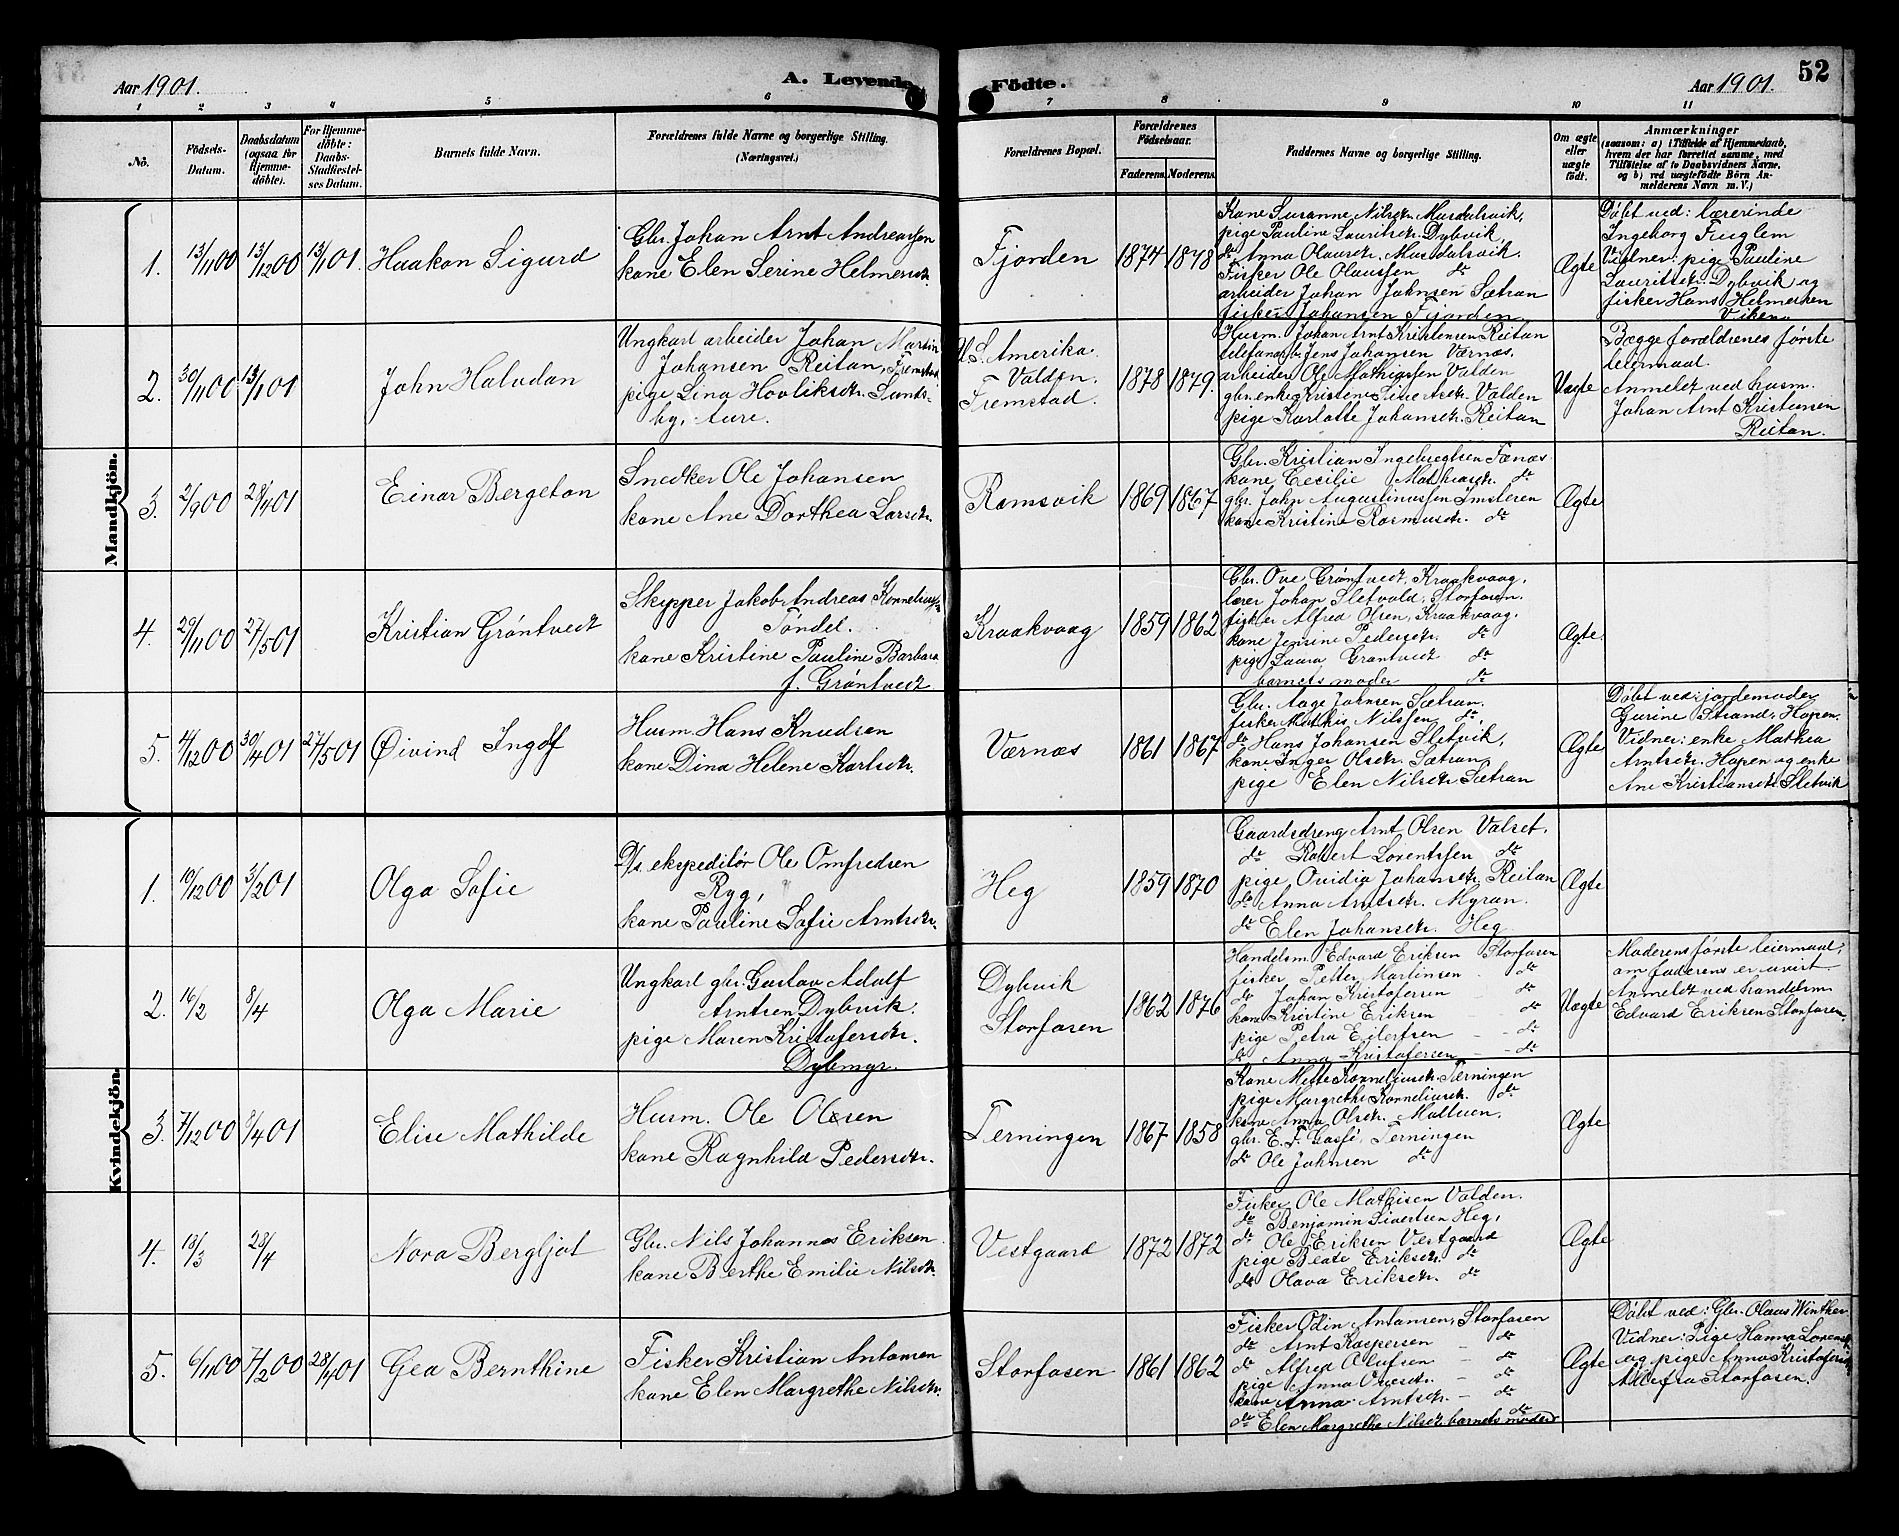 Aar 1901.
A. Levende Födte.
Aar 1901.
52
1 2 3 4 5 6 7 8 9 10 11
No.
Födsels-Datum.
Daabsdatum (ogsaa for Hjemme-döbte).
For Hjemme-döbte: Daabs-Stadfæstel-ses Datum.
Barnets fulde Navn.
Forældrenes fulde Navne og borgerlige Stilling.
(Næringsvei.)
Forældrenes Bopæl.
Forældrenes Födselsaar.
Faderens. Moderens.
Faddernes Navne og borgerlige Stilling.
Om ægte eller uægte födt.
Anmærkninger
(saasom: a) i Tilfælde af Hjemmedaab, hvem der har forrettet samme, med Tilföielse af to Daabsvidners Navne, og b) ved uægtefödte Börn Anmelderens Navn m. V.)
Mandkjön.
1. 13/11 00 13/12 00 13/1 01. Haakon Sigurd
Gbr. Johan Arnt Andreassen
kone Elen Serine Helmersdtr.
Fjorden 1874 1878
Kone Susanne Nilsdtr. Musdalsvik,
pige Pauline Lauritsdtr. Dybvik,
do Anna Olausdtr. Musdalsvik.
Fisker Ole Olaussen do
arbeider Johan Johnsen Sætran
fisker Johansen Fjorden
Ægte
Döbt ved: lærerinde
Ingeborg Fuglem
Vidner: pige Pauline
Lauritsdtr. Dybvik og
fisker Hans Helmersen
Viken
2. 30/11 00 13/1 01 John Halvdan
Ungkarl arbeider Johan Martin
Johansen Reitan, Fremstad
pige Lina Hovliksdtr. Sunds-
by, Aure.
U.S. Amerika.
Valden.
Fremstad.
1878 1879.
Husm. Johan Arnt Kristensen Reitan
telefonarb. Jens Johansen Værnæs.
arbeider Ole Mathiassen Valden
gbr. enke Kristene Sivertsdtr. Valden
pige Karlotte Johansdtr. Reitan
Uægte
Begge forældrenes første
leiermaal.
Anmeldt ved husm.
Johan Arnt Kristensen
Reitan.
3. 2/9 00 28/4 01 Einar Bergeton
Snedker Ole Johansen
kone Ane Dorthea Larsdtr.
Ramsvik 1869 1867
Gbr. Kristian Ingebregtsen Fænæs
kone Cecilie Mathiasdtr. do
gbr. John Augustinussen Imsteren
kone Kristine Rasmusdtr. do
Ægte
4. 29/11 00 27/5 01 Kristian Gröntvedt
Skipper Jakob Andreas Korneliussen
Töndel.
kone Kristine Pauline Barbara
f. Gröntvedt
Kraakvaag 1859 1862
Gbr. Ove Gröntvedt, Kraakvaag.
lærer Johan Sletvold, Storfosen.
fisker Alfred Olsen, Kraakvaag.
kone Jensine Pedersdtr. do
pige Laura Grøntvedt do
barnets moder do
Ægte.
5. 4/12 00 30/4 01 27/5 01 Øivind Ingolf
Husm. Hans Knudsen
kone Dina Helene Karlsdtr.
Værnæs 1861 1867
Gbr. Aage Johnsen Sætran.
fisker Mathis Nilssen do,
do Hans Johansen Sletvik,
kone Inger Olsdtr. Sætran,
pige Elen Nilsdtr. Sætran
Ægte
Döbt ved: jordemoder
Gurine Strand, Hopen.
Vidner: enke Mathea
Arntsdtr. Hopen og enke
Ane Kristiansdtr. Sletvik
Kvindekjön.
1. 10/12 00 3/2 01 Olga Sofie
D/s. ekspeditör Ole Omfredsen
Ryg,
kone Pauline Sofie Arntsdtr.
Heg 1859 1870
Gaardsdreng Arnt Olsen Valset.
do Robert Lorentssen do
pige Ovidia Johansdtr. Reitan
do Anna Arntsdtr. Myran.
do Elen Johansdtr. Heg
Ægte
2. 16/2 8/4 Olga Marie
Ungkarl gbr. Gustav Adolf
Arntsen Dybvik.
pige Maren Kristofersdtr.
Dybmyr.
Dybvik
Storfosen
1862 1876
Handelsm. Edvard Eriksen Storfosen
fisker Petter Martinsen do
do Johan Kristofersen do
kone Kristine Eriksen do
pige Petra Eilertsen do
do Anna Kristofersen do
Uægte
Moderens første leiermaal,
om faderens er uvist
Anmeldt ved handelsm
Edvard Eriksen Storfosen.
3. 7/12 00 8/4 01 Elise Mathilde
Husm. Ole Olsen
kone Ragnhild Pedersdtr.
Terningen 1867 1858
Kone Mette Korneliusdtr. Terningen
pige Margrethe Korneliusdtr. do
kone Anna Olsdtr. Mattuen.
gbr. E. F. Gassö, Terningen
do Ole Johnsen do
Ægte
4. 13/3 28/4 Nora Bergljot
Gbr. Nils Johannes Eriksen
kone Berthe Emilie Nilsdtr.
Vestgaard 1872 1872
Fisker Ole Mathisen Valden.
do Benjamin Sivertsen Heg,
do Ole Eriksen Vestgaard
pige Beate Eriksdtr. do
do Olava Eriksdtr. do
Ægte
5. 6/11 00 7/12 00 28/4 01 Gea Bernthine
Fisker Kristian Antonsen
kone Elen Margrethe Nilsdtr.
Storfosen 1861 1862
Fisker Odin Antonsen, Storfosen
do Arnt Kaspersen do
do Alfred Olufsen do
pige Anna Ovesdtr. do
kone Anna Arntsdtr. do
do Elen Margrethe Nilsdtr. barnets moder do
Ægte
Döbt ved: Gbr. Olaus Winther
Vidner: Pige Hanna Lorensdtr
og pige Anna Kristofersdtr
Alle fra Storfosen.